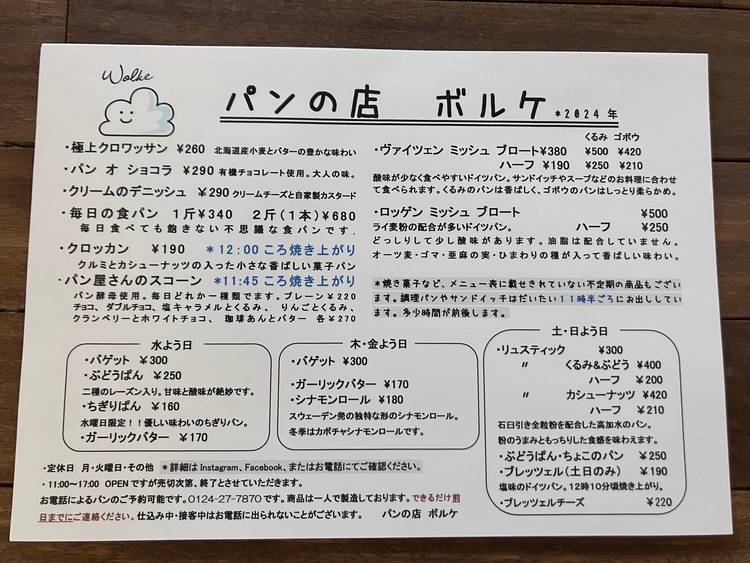 Wolke
パンの店 ボルケ *2024年
・極上クロワッサン ¥260 北海道産小麦とバターの豊かな味わい
・パン オ ショコラ ¥290 有機チョコレート使用。大人の味。
・クリームのデニッシュ ¥290 クリームチーズと自家製カスタード
・毎日の食パン 1斤¥340 2斤(1本)¥680
毎日食べても飽きない不思議な食パンです.
・クロッカン ¥190 *12:00ころ焼き上がり
クルミとカシューナッツの入った小さな香ばしい菓子パン
・パン屋さんのスコーン *11:45ころ焼き上がり
パン酵母使用。毎日どれか一種類でます。プレーン¥220
チョコ、ダブルチョコ、塩キャラメルとくるみ、りんごとくるみ、
クランベリーとホワイトチョコ、珈琲あんとバター 各¥270
くるみ ゴボウ
・ヴァイツェン ミッシュ ブロート¥380 ¥500 ¥420
ハーフ ¥190 ¥250 ¥210
酸味が少なく食べやすいドイツパン。サンドイッチやスープなどのお料理に合わせ
て食べられます。くるみのパンは香ばしく、ゴボウのパンはしっとり柔らかめ。
・ロッゲン ミッシュ ブロート ¥500
ライ麦粉の配合が多いドイツパン。 ハーフ ¥250
どっしりして少し酸味があります。油脂は配合していません。
オーツ麦・ゴマ・亜麻の実・ひまわりの種が入って香ばしい味わい。
*焼き菓子など、メニュー表に載せきれていない不定期の商品もござい
ます。調理パンやサンドイッチはだいたい11時半ごろにお出ししてい
ます。多少時間が前後します。
水よう日
・バゲット ¥300
・ぶどうぱん ¥250
二種のレーズン入り。甘味と酸味が絶妙です。
・ちぎりぱん ¥160
水曜日限定!!優しい味わいのちぎりパン。
・ガーリックバター ¥170
木・金よう日
・バゲット ¥300
・ガーリックバター ¥170
・シナモンロール ¥180
スウェーデン発の独特な形のシナモンロール。
冬季はカボチャシナモンロールです。
土・日よう日
・リュスティック ¥300
〃 くるみ&ぶどう ¥400
ハーフ ¥200
〃 カシューナッツ ¥420
ハーフ ¥210
石臼引き全粒粉を配合した高加水のパン。
粉のうまみともっちりした食感を味わえます。
・ぶどうぱん・ちょこのパン ¥250
・ブレッツェル(土日のみ) ¥190
塩味のドイツパン。12時10分頃焼き上がり。
・ブレッツェルチーズ ¥220
・定休日 月・火曜日・その他 *詳細は Instagram、Facebook、またはお電話にてご確認ください。
・11:00~17:00 OPEN ですが売切次第、終了とさせていただきます。
お電話によるパンのご予約可能です。0124-27-7870です。商品は一人で製造しております。できるだけ前
日までにご連絡ください。仕込み中・接客中はお電話に出られないことがございます。 パンの店 ボルケ